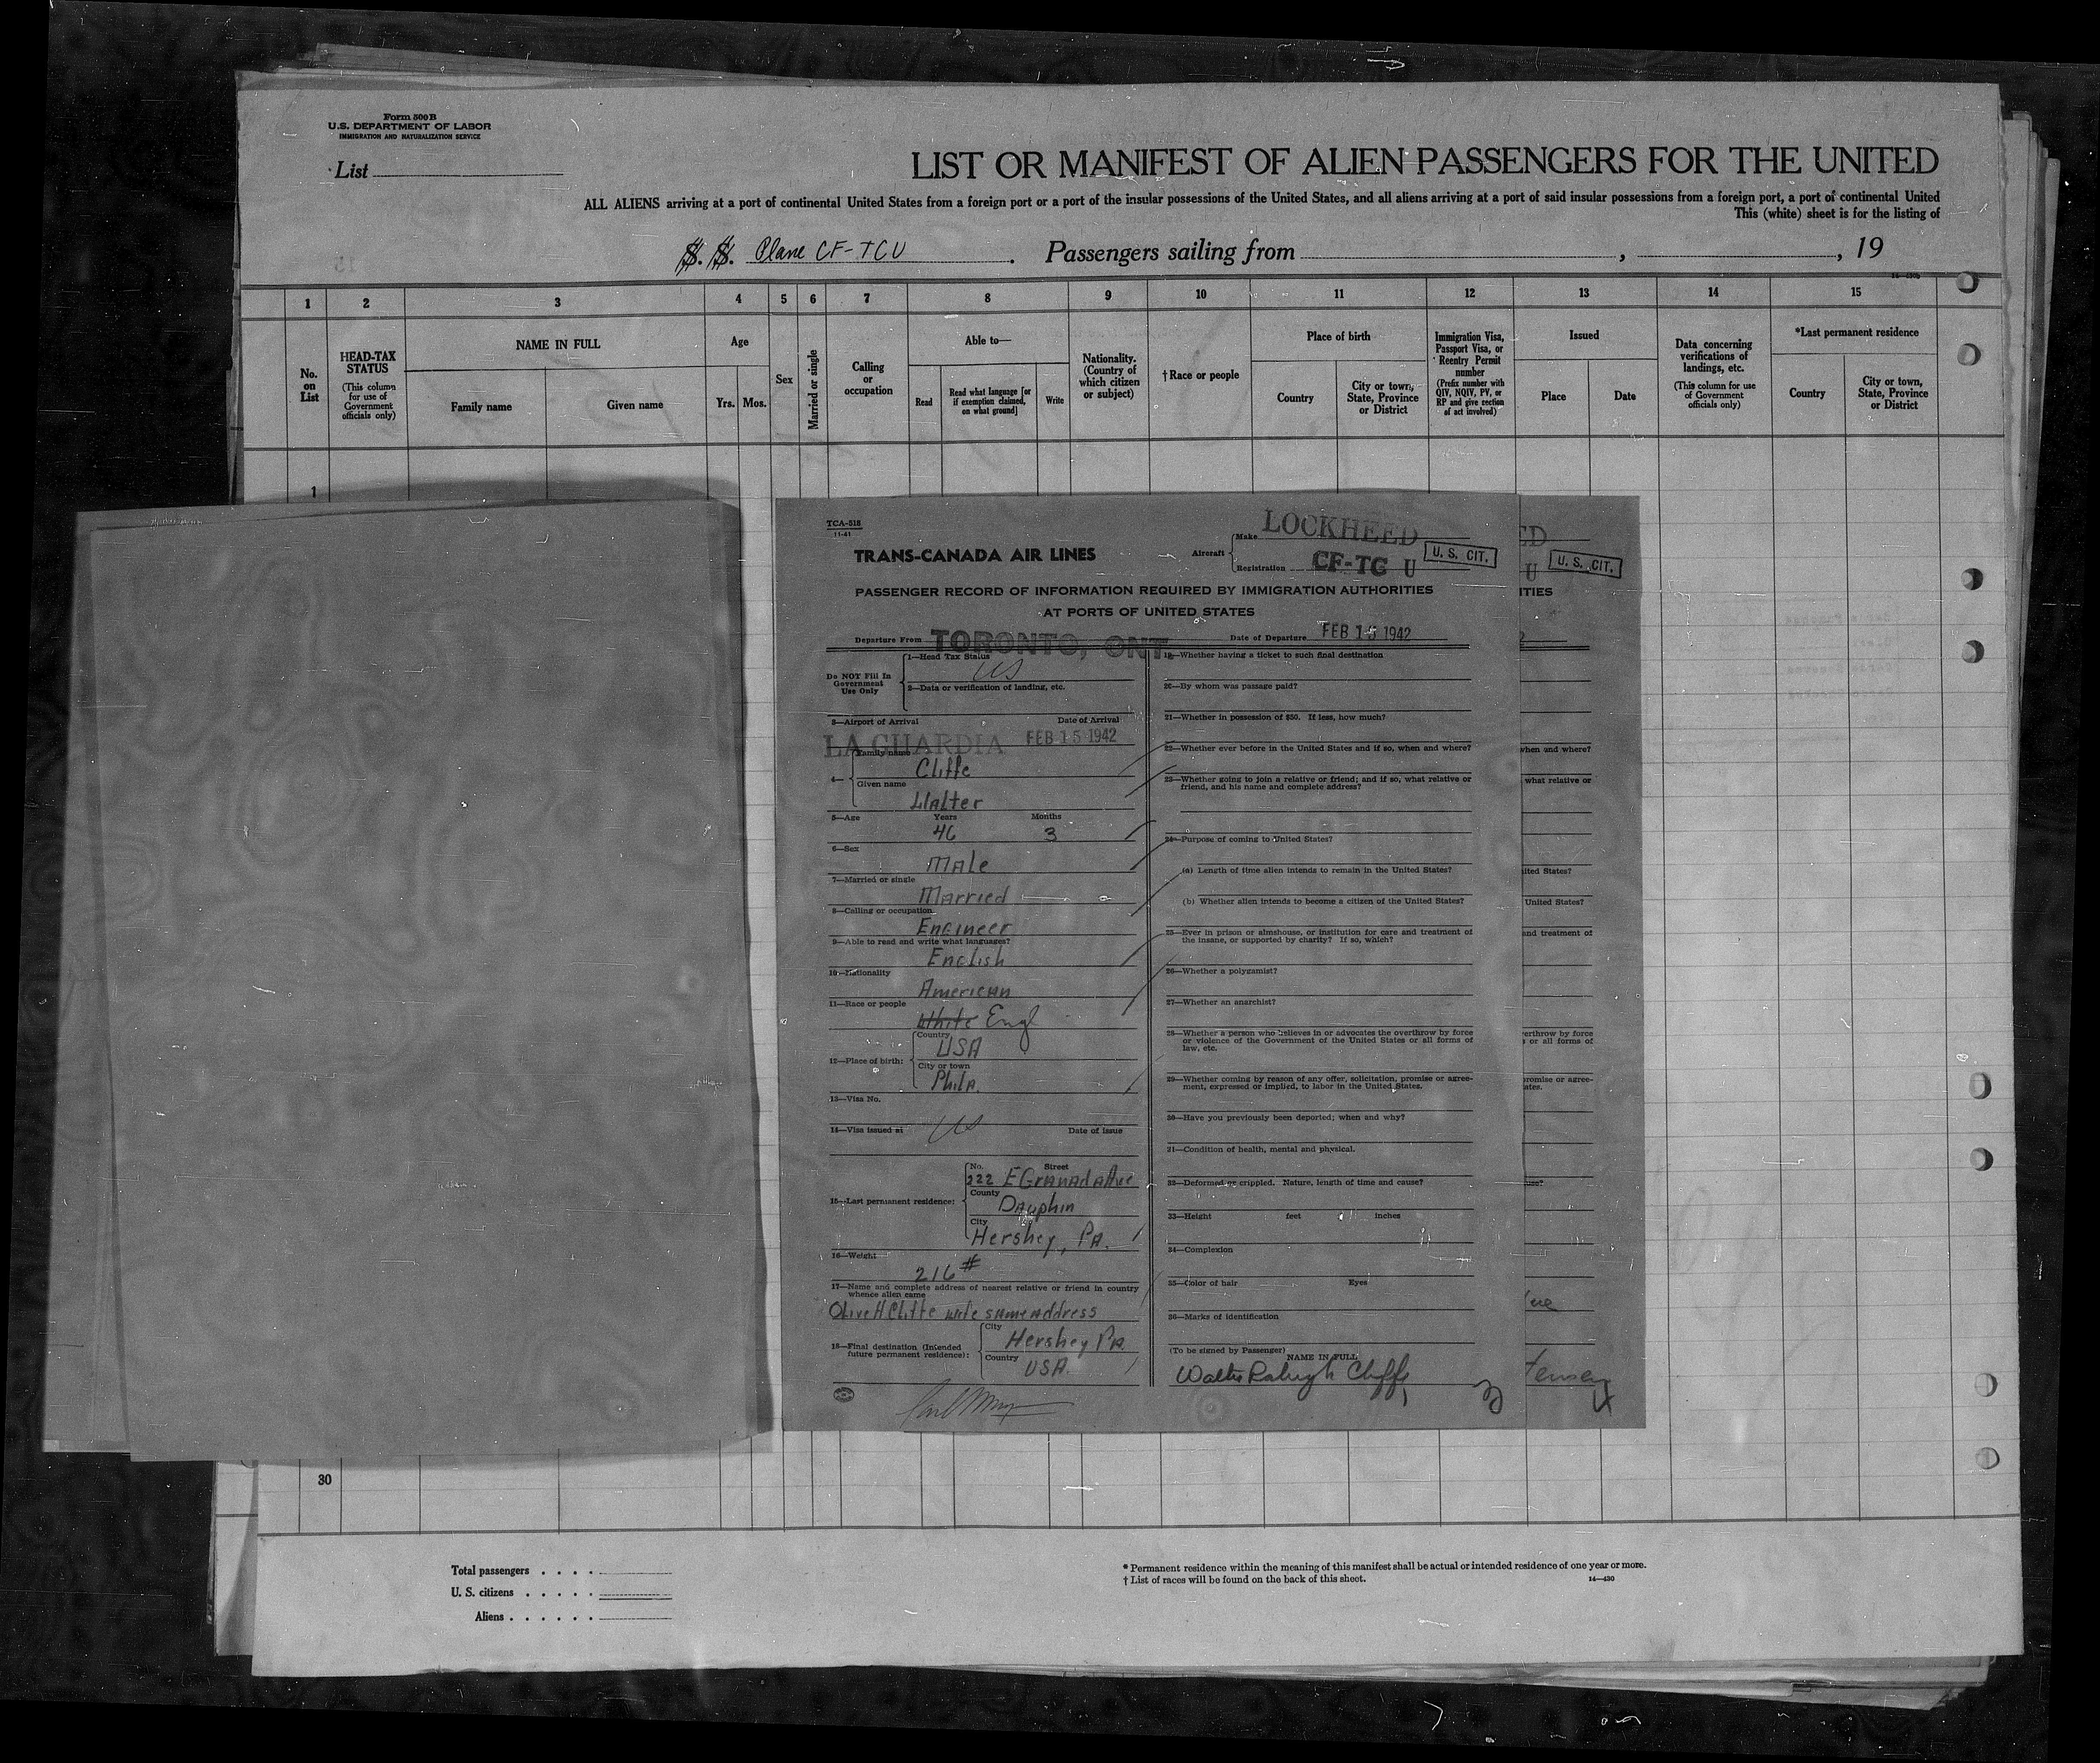 Form 500B
U.S. DEPARTMENT OF LABOR
IMMIGRATION AND NATURALIZATION SERVICE
List
LIST OR MANIFEST OF ALIEN PASSENGERS FOR THE UNITED
ALL ALIENS arriving at a port of continental United States from a foreign port or a port of the insular possessions of the United States, and all aliens arriving at a port of said insular possessions from a foreign port, a port of continental United
This (white) sheet is for the listing of
S. S. Plane CF-TCU. Passengers sailing from , , 19
1 2 3 4 5 6 7 8 9 10 11 12 13 14 15
No. on List
HEAD-TAX STATUS
(This column for use of Government officials only)
NAME IN FULL
Family name
Given name
Age
Yrs. Mos.
Sex
Married or single
Calling or occupation
Able to—
Read
Read what language [or if exemption claimed, on what ground]
Write
Nationality. (Country of which citizen or subject)
†Race or people
Place of birth
Country
City or town, State, Province or District
Immigration Visa, Passport Visa, or Reentry Permit number
(Prefix number with QIV, NQIV, PV, or RP and give section of act involved)
Issued
Place
Date
Data concerning verifications of landings, etc.
(This column for use of Government officials only)
*Last permanent residence
Country
City or town, State, Province or District
1
TCA-518
11-41
TRANS-CANADA AIR LINES
Aircraft
Make LOCKHEED
Registration CF-TC U
U. S. CIT.
PASSENGER RECORD OF INFORMATION REQUIRED BY IMMIGRATION AUTHORITIES
AT PORTS OF UNITED STATES
Departure From TORONTO, ONT.
Date of Departure FEB 15 1942
Do NOT Fill In Government Use Only
1—Head Tax Status
US
2—Data or verification of landing, etc.
3—Airport of Arrival Date of Arrival
LA GUARDIA FEB 15 1942
4— Family name
Cliffe
Given name
Walter
5—Age Years Months
46 3
6—Sex
Male
7—Married or single
Married
8—Calling or occupation
Engineer
9—Able to read and write what languages?
English
10—Nationality
American
11—Race or people
White Engl
12—Place of birth:
Country
USA
City or town
Phila.
13—Visa No.
14—Visa issued at Date of issue
US
15—Last permanent residence:
No. Street
222 E Granada Ave
County
Dauphin
City
Hershey, Pa.
16—Weight
216#
17—Name and complete address of nearest relative or friend in country whence alien came
Olive H Cliffe wife same address
18—Final destination (Intended future permanent residence):
City
Hershey Pa.
Country
USA.
19—Whether having a ticket to such final destination
20—By whom was passage paid?
21—Whether in possession of $50. If less, how much?
22—Whether ever before in the United States and if so, when and where?
23—Whether going to join a relative or friend; and if so, what relative or friend, and his name and complete address?
24—Purpose of coming to United States?
(a) Length of time alien intends to remain in the United States?
(b) Whether alien intends to become a citizen of the United States?
25—Ever in prison or almshouse, or institution for care and treatment of the insane, or supported by charity? If so, which?
26—Whether a polygamist?
27—Whether an anarchist?
28—Whether a person who believes in or advocates the overthrow by force or violence of the Government of the United States or all forms of law, etc.
29—Whether coming by reason of any offer, solicitation, promise or agreement, expressed or implied, to labor in the United States.
30—Have you previously been deported; when and why?
31—Condition of health, mental and physical.
32—Deformed or crippled. Nature, length of time and cause?
33—Height feet inches
34—Complexion
35—Color of hair Eyes
36—Marks of identification
(To be signed by Passenger)
NAME IN FULL
Walter Raleigh Cliffe
3
ED
U
U. S. CIT.
ITIES
2
when and where?
what relative or
ited States?
United States?
and treatment of
erthrow by force
s or all forms of
promise or agree-
ates.
use?
4
30
Total passengers
U. S. citizens
Aliens
* Permanent residence within the meaning of this manifest shall be actual or intended residence of one year or more.
† List of races will be found on the back of this sheet.
14—430